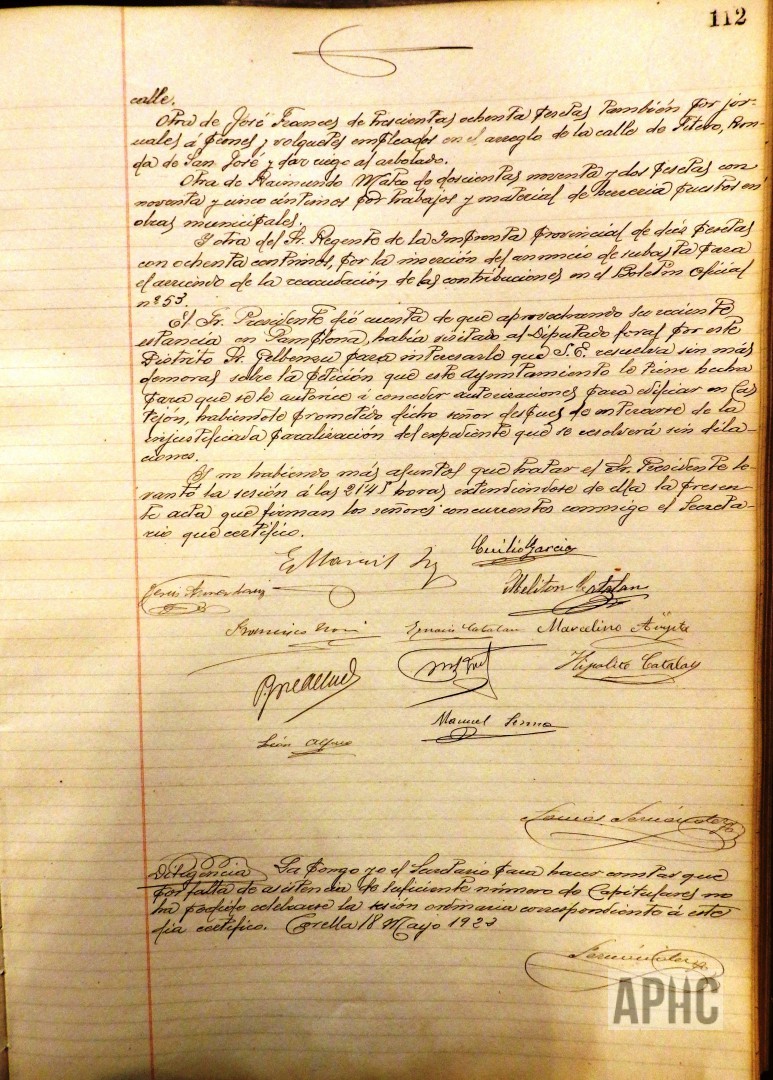 112
calle.
Otra de José Frances de trescientas ochenta pesetas también por jor-
nales á peones y volquetes empleados en el arreglo de la calle de Fitero, Ron-
da de San José y dar riego al arbolado.
Otra de Raimundo Mateo de doscientas noventa y dos pesetas con
noventa y cinco céntimos por trabajos y material de herreria puestos en
obras municipales.
Y otra del Sr. Regente de la Imprenta Provincial de seis pesetas
con ochenta centimos, por la inserción del anuncio de subasta para
el arriendo de la recaudación de las contribuciones en el Boletin Oficial
nº 53.
El Sr. Presidente dió cuenta de que aprovechando su reciente
estancia en Pamplona, había visitado al Diputado foral por este
Distrito Sr. Gelbenzu para interesarle que S.E. resuelva sin más
demoras sobre la petición que este ayuntamiento le tiene hecha
para que se le autorice á conceder autorizaciones para edificar en Cas
tejón, habiendole prometido dicho señor despues de enterarse de la
injustificada paralización del expediente que se resolverá sin dila-
ciones.
Y no habiendo más asuntos que tratar el Sr. Presidente le-
vantó la sesión á las 21'45 horas extendiéndose de ella la presen-
te acta que firman los señores concurrentes conmigo el Secreta-
rio que certifico.
Emilio Garcia
Meliton Catalan
Francisco Ignacio Catalan Marcelino
Hipolito Catalan
Manuel
León Alfaro
Diligencia La pongo yo el Secretario para hacer constar que
por falta de asistencia de suficiente número de Capitulares no
ha podido celebrarse la sesión ordinaria correspondiente á este
día certifico. Corella 18 Mayo 1923
APHC